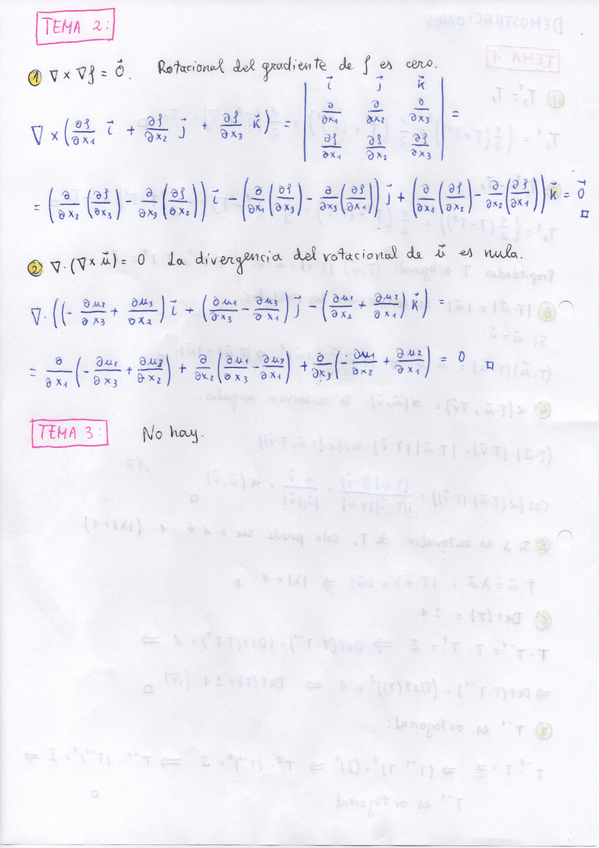 TEMA 2:
① ∇ × ∇f = 0⃗. Rotacional del gradiente de f es cero.
∇ × (∂f/∂x₁ i⃗ + ∂f/∂x₂ j⃗ + ∂f/∂x₃ k⃗) = | i⃗ j⃗ k⃗ ; ∂/∂x₁ ∂/∂x₂ ∂/∂x₃ ; ∂f/∂x₁ ∂f/∂x₂ ∂f/∂x₃ | =
= (∂/∂x₂ (∂f/∂x₃) - ∂/∂x₃ (∂f/∂x₂)) i⃗ - (∂/∂x₁ (∂f/∂x₃) - ∂/∂x₃ (∂f/∂x₁)) j⃗ + (∂/∂x₁ (∂f/∂x₂) - ∂/∂x₂ (∂f/∂x₁)) k⃗ = 0⃗ □
② ∇·(∇ × u⃗) = 0 La divergencia del rotacional de u⃗ es nula.
∇·((-∂u₂/∂x₃ + ∂u₃/∂x₂) i⃗ + (∂u₁/∂x₃ - ∂u₃/∂x₁) j⃗ - (∂u₁/∂x₂ + ∂u₂/∂x₁) k⃗) =
= ∂/∂x₁ (-∂u₂/∂x₃ + ∂u₃/∂x₂) + ∂/∂x₂ (∂u₁/∂x₃ - ∂u₃/∂x₁) + ∂/∂x₃ (-∂u₁/∂x₂ + ∂u₂/∂x₁) = 0 □
TEMA 3: No hay.